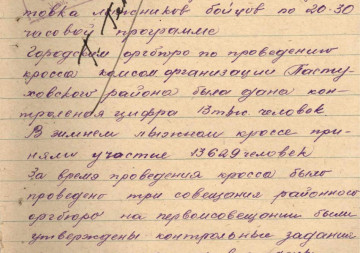 товка лыжников бойцов по 20-30
часовой программе
Городским оргбюро по проведению
кросса комсоморганизации Пасту-
ховского района была дана кон-
трольная цифра 13 тыс. человек
В зимнем лыжном кроссе при-
няли участие 13629 человек
За время проведения кросса было
проведено три совещания районного
оргбюро на первом совещании были
утверждены контрольные задания